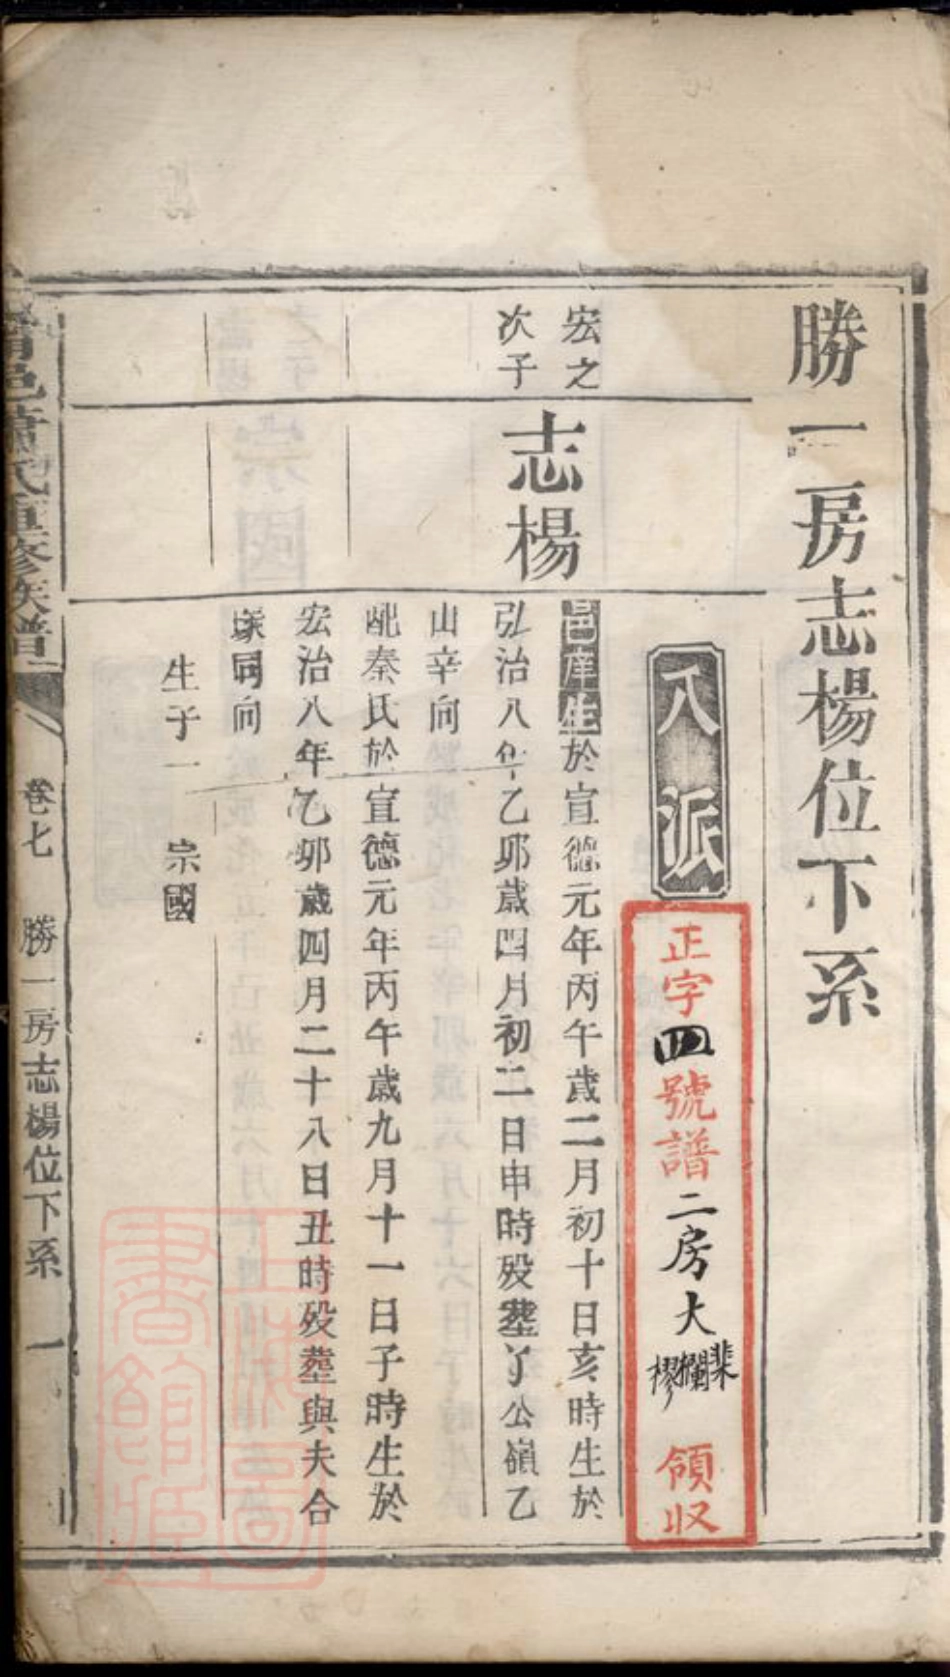 勝一房志楊位下系
八派
正字四號譜二房大 領収
宏之
次子
志楊
邑庠生於宣德元年丙午歲二月初十日亥時生於
弘治八年乙卯歲四月初二日申時殁塟丫公嶺乙
山辛向
配秦氏於宣德元年丙午歲九月十一日子時生於
宏治八年乙卯歲四月二十八日丑時殁塟與夫合
塚同向
生子一 宗國
邑蕭氏重修族譜
卷七 勝一房志楊位下系 一